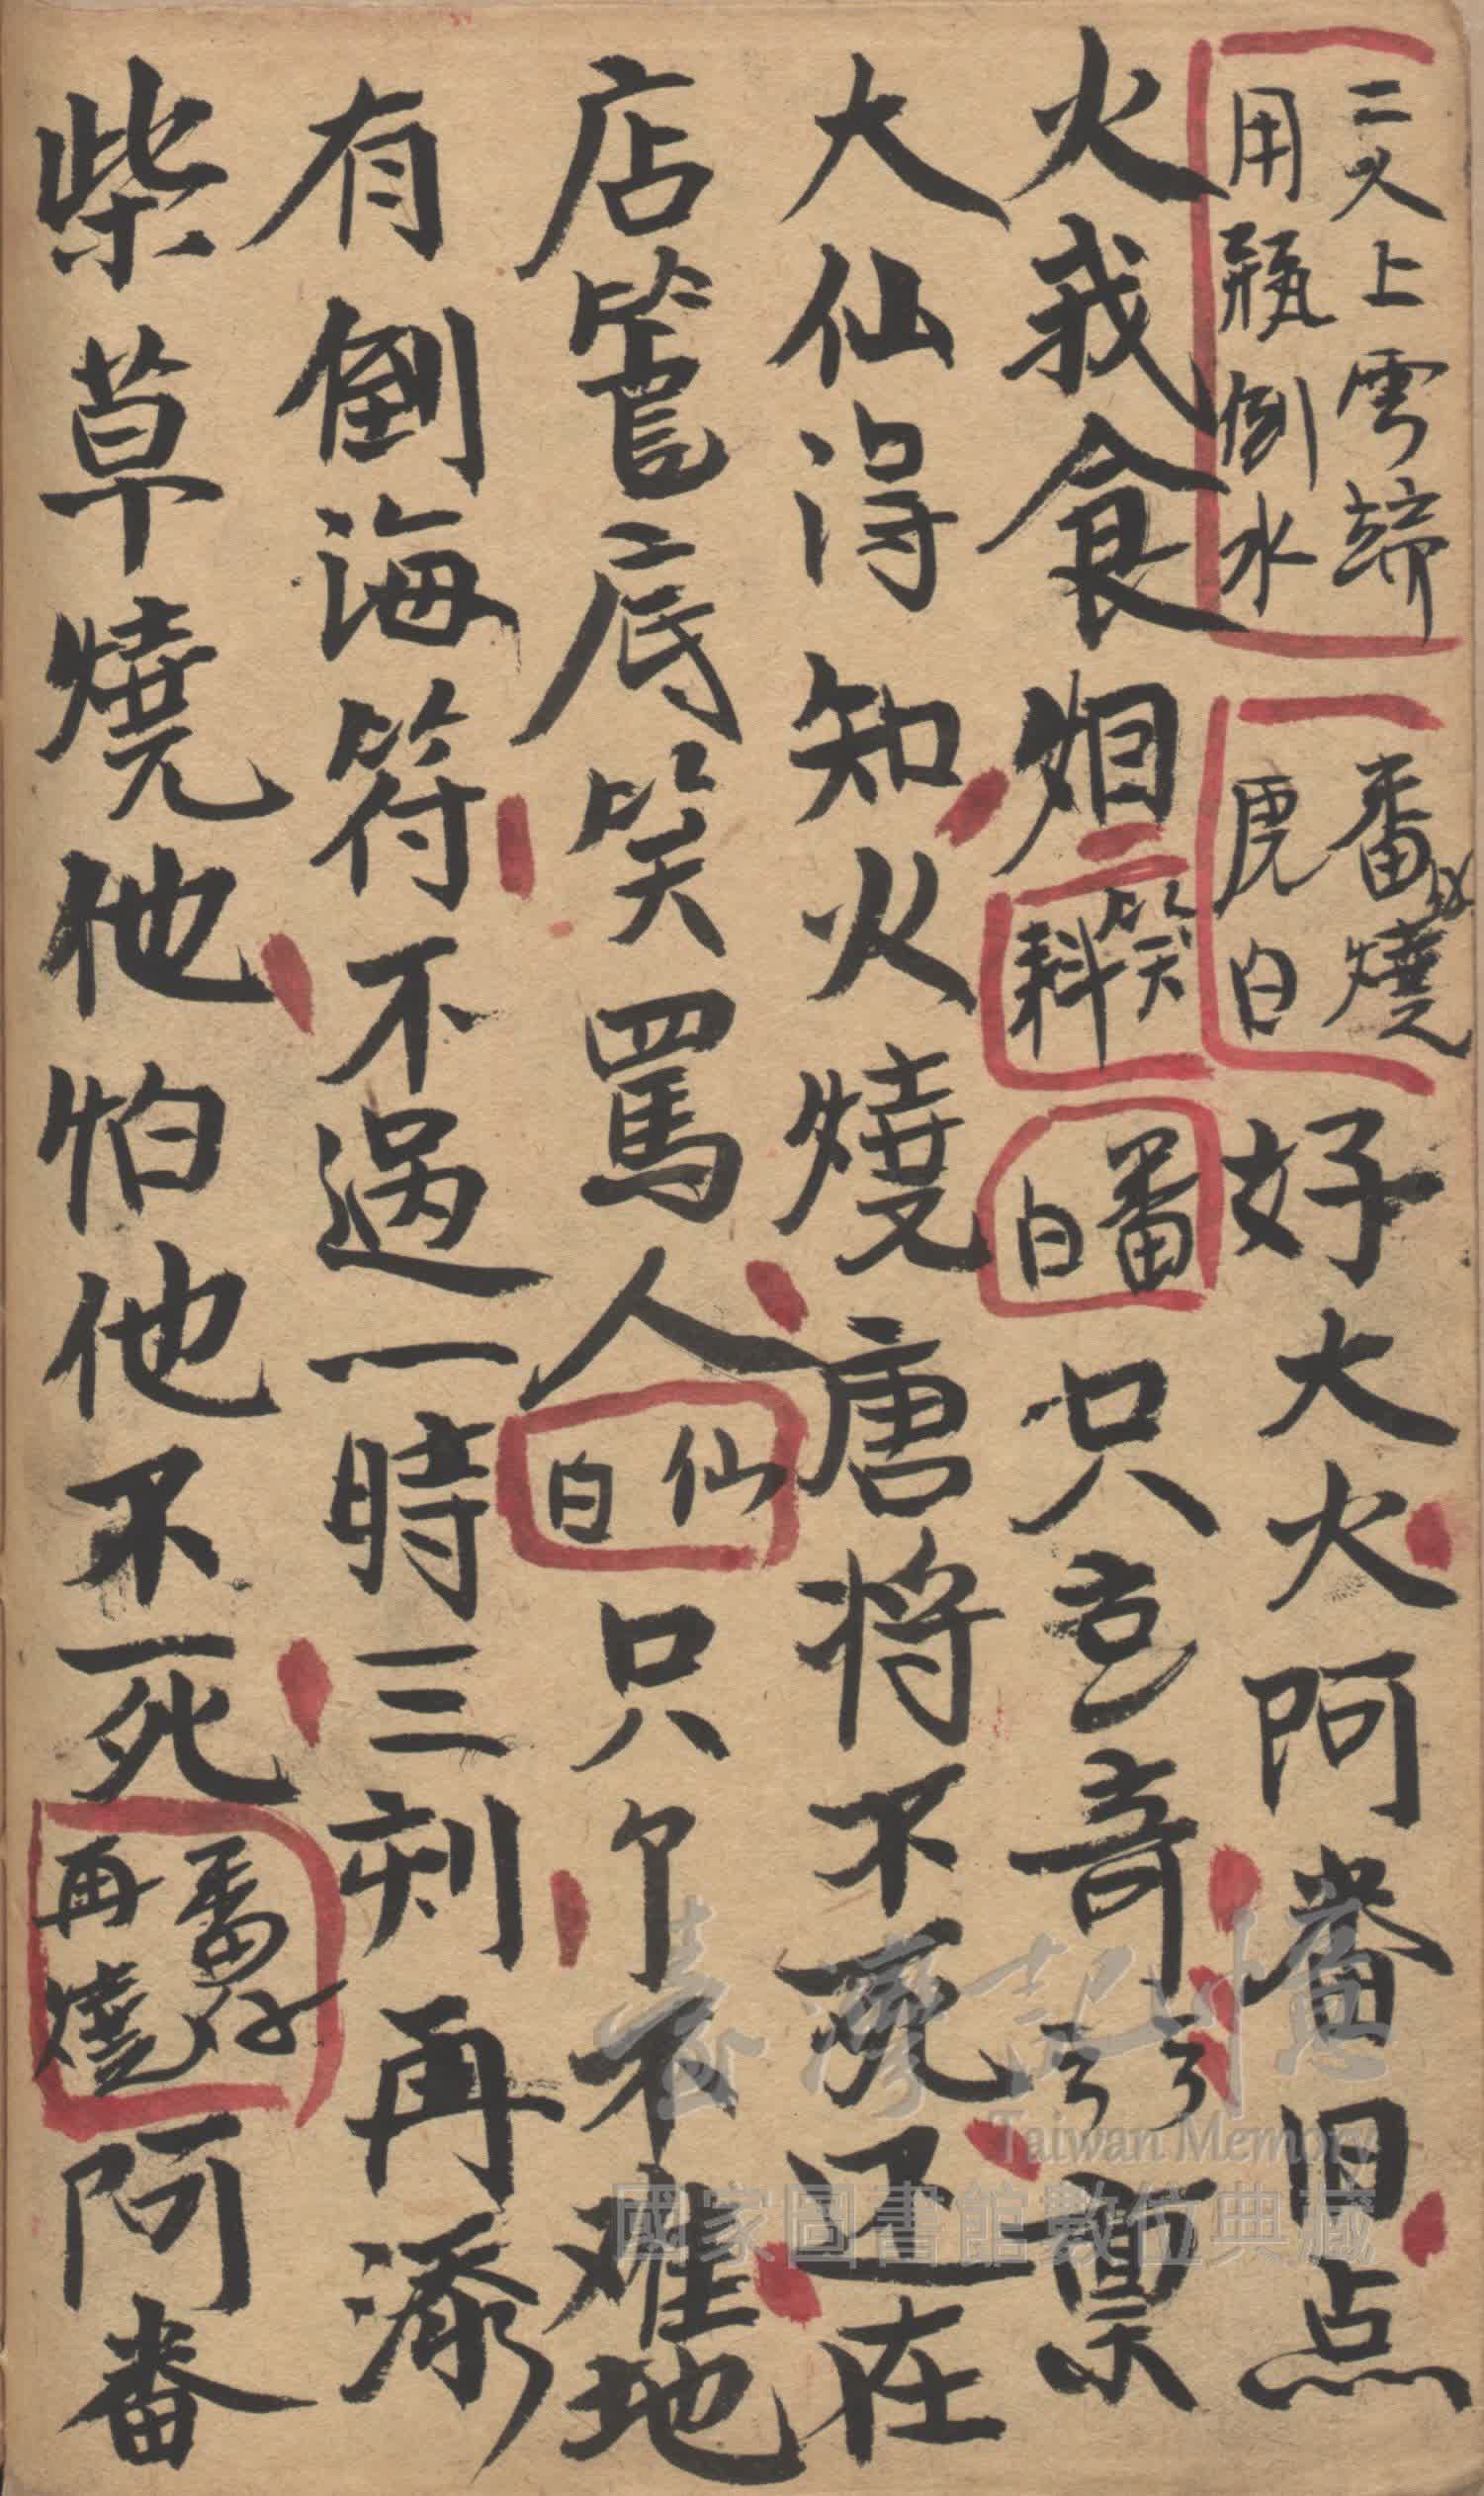 二人上雲端
用瓶倒水
番燒
虎白
好大火阿番旧点
火我食烟
笑
科
番
白
只言奇
禀
大仙得知火燒唐将不死还在
店窓底笑罵人
仙
白
只个不难地
有倒海符不過一時三刻再添
柴草燒他怕他不死
番仔
再燒
阿番
臺灣記憶
Taiwan Memory
國家圖書館數位典藏